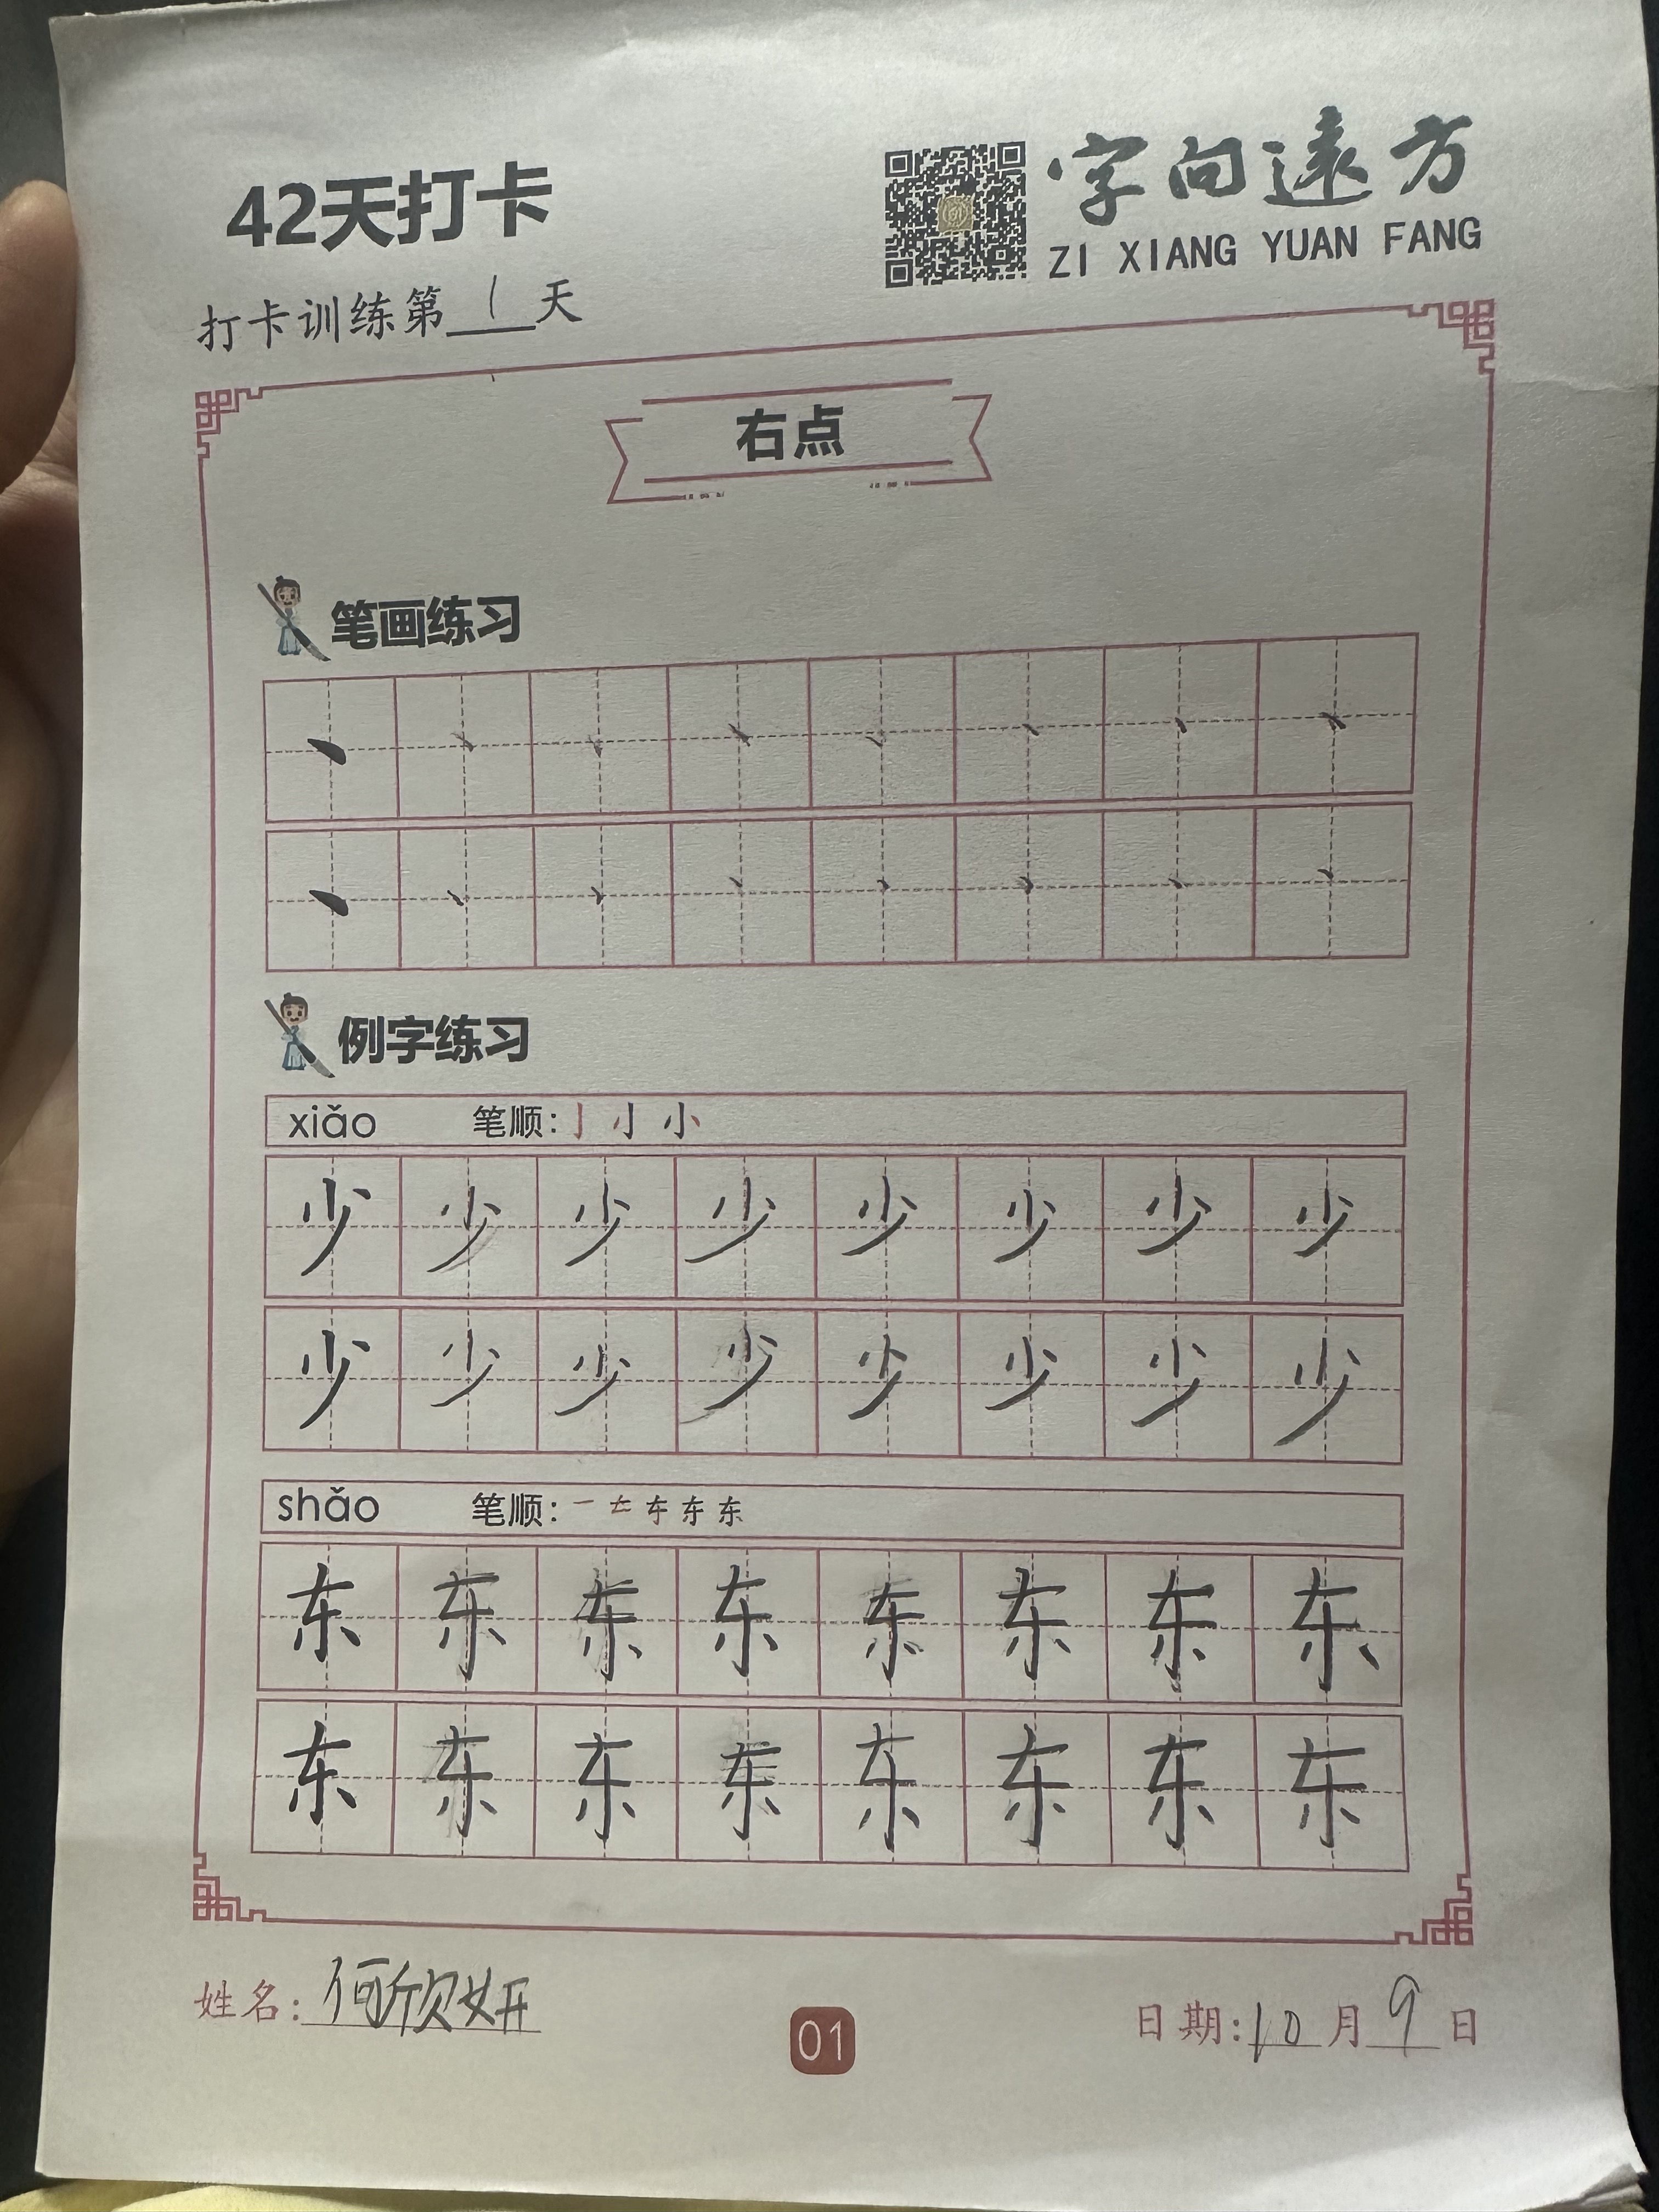 42天打卡
字向遠方
ZI XIANG YUAN FANG
打卡训练第1天
右点
笔画练习
丶 丶 丶 丶 丶 丶 丶 丶
丶 丶 丶 丶 丶 丶 丶 丶
例字练习
xiǎo 笔顺: 亅 小 小
少 少 少 少 少 少 少 少
少 少 少 少 少 少 少 少
shǎo 笔顺: 一 𠂇 车 东 东
东 东 东 东 东 东 东 东
东 东 东 东 东 东 东 东
姓名: 何欣妍
01
日期: 10月9日